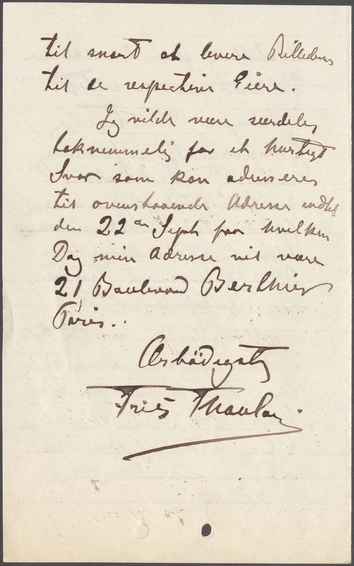 til snart at levere Billederne
til de respective Eiere.
Jeg vilde være særdeles
taknemmelig for et hurtigt
Svar som kan adresseres
til ovenstaaende Adresse indtil
den 22de Septb fra hvilken
Dag min Adresse vil være
21 Boulevard Berthier
Paris.
Ærbödigst
Frits Thaulow.